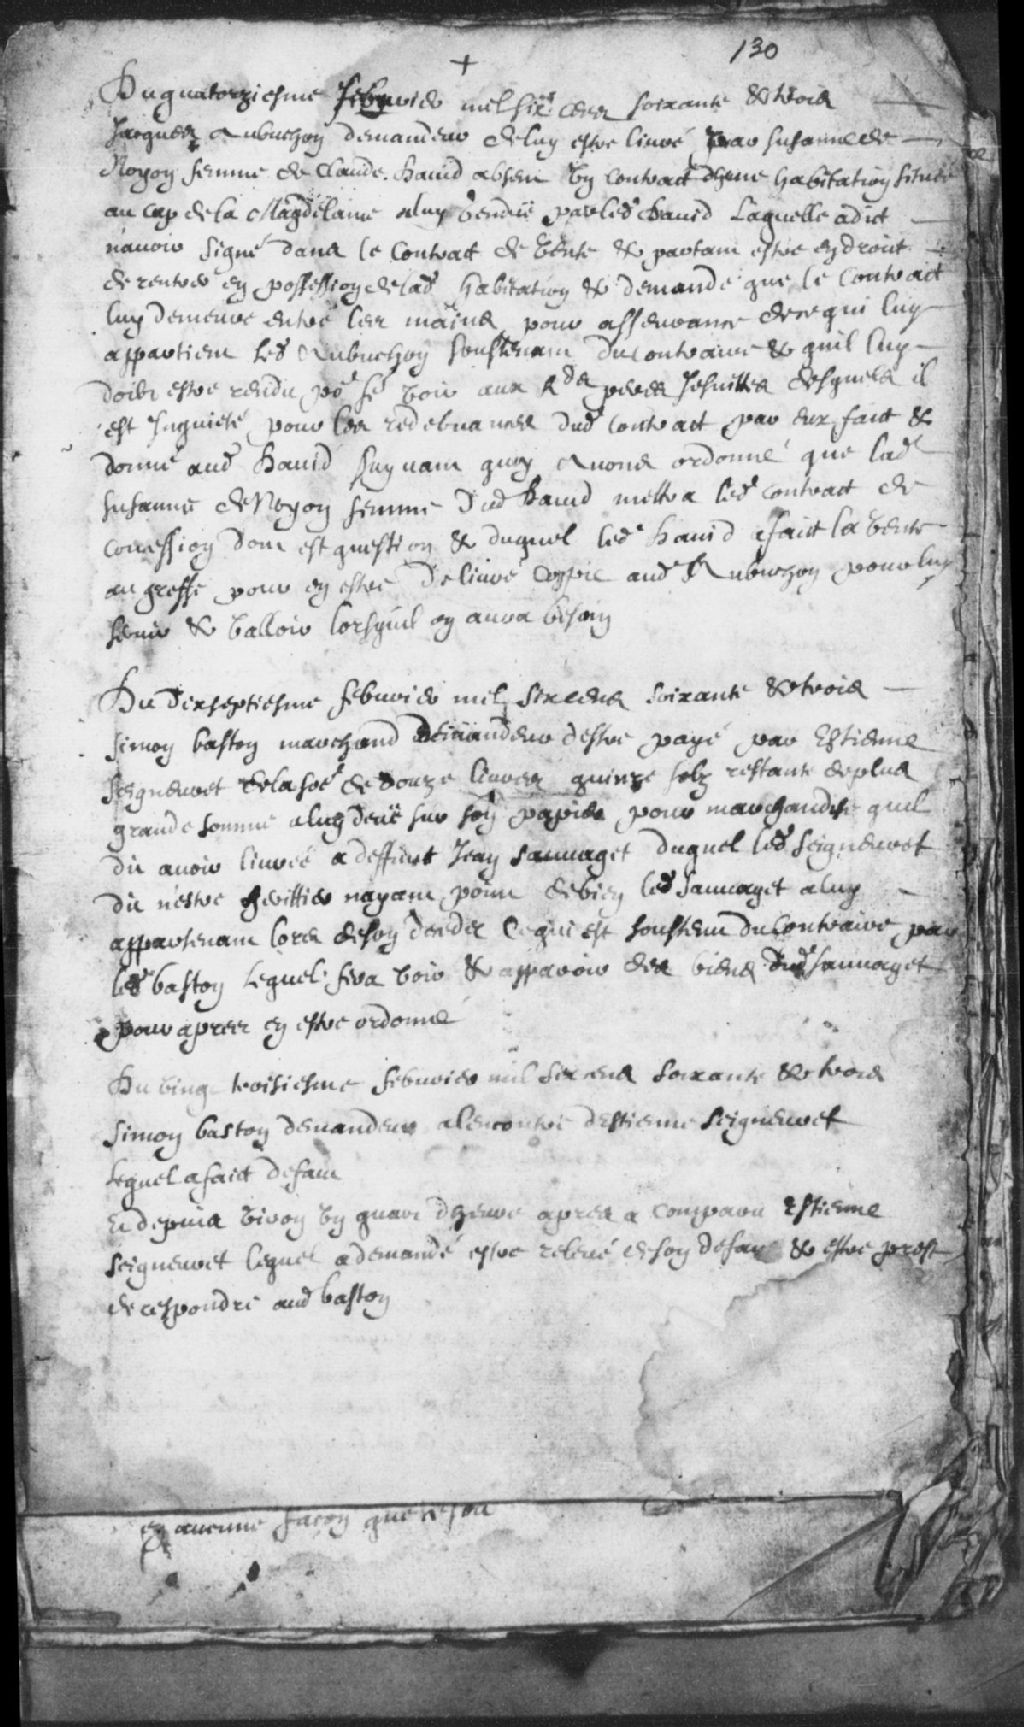 130
+
Du quatorziesme febvrier mil six cens soixante & trois
Jacques Aubuchon demandeur de luy estre livré par susanne de
Noyon femme de Claude houd absent un contract dhune habitation située
au cap de la Magdelaine aluy vendüe par led houd Laquelle a dict
n'avoir signé dans le Contract de vente & partant estre en droict
de rentrer en possession de lad habitation & demandé que le Contract
luy demeure entre les mains pour asseurance de ce qui luy
appartient led Aubuchon soustenant du contraire & quil luy
doibt estre rendu po le voir aux Rds peres Jesuittes desquels il
est Inquieté pour les redebvances dud contract par eux fait &
donné aud houd suyvant quoy Avons ordonné que lad
susanne de Noyon femme dud houd mettra led contract de
concession dont est question & duquel led houd a fait la vente
au greffe pour en estre delivré coppie aud Aubuchon pour luy
servir & valloir lorsquil en aura besoin
Du dixseptiesme febvrier mil six cens soixante & trois
simon baston marchand demandeur destre payé par Estienne
seigneuret de la soe de douze livres quinze solz restante de plus
grande somme aluy deüe sur son papier pour marchandise quil
dit avoir livrée a deffunt Jean sauvaget duquel led seigneuret
dit n'estre heritier nayant point de bien led sauvaget aluy
appartenant lors de son deceds Ce qui est soustenu du contraire par
led baston Lequel fera voir & apparoir des biens dud sauvaget
pour apres en estre ordonné
Du vingt troisiesme febvrier mil six cens soixante & trois
simon baston demandeur alencontre destienne seigneuret
Lequel a fait defaut
Et depuis viron un quart dheure apres a comparu Estienne
seigneuret lequel a demandé estre relevé de son defaut & estre prest
de respondre aud baston
en aucune façon que ce soit